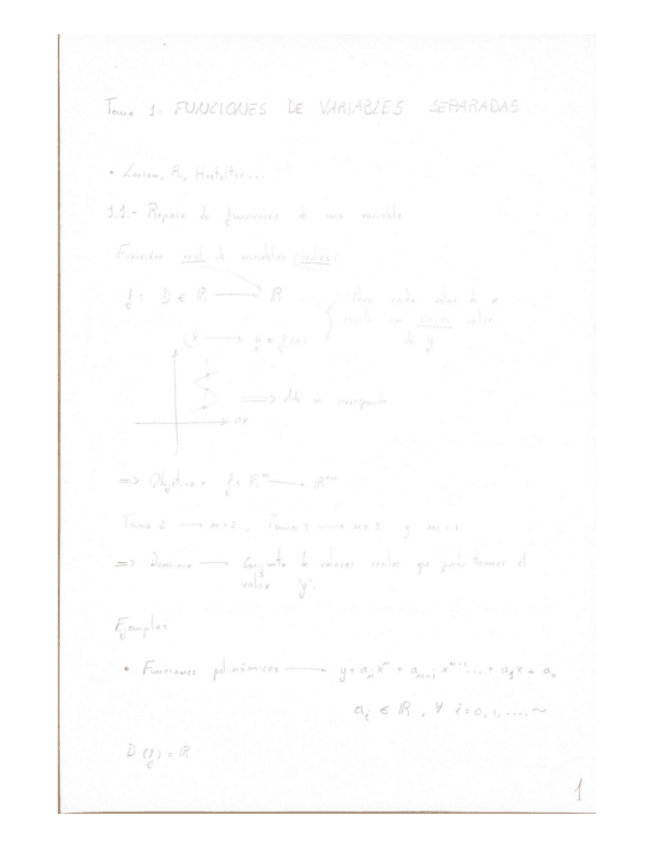 Tema 1. FUNCIONES DE VARIABLES SEPARADAS
• Larson, R., Hostetler...
1.1.- Repaso de funciones de una variable
Función real de variables (reales)
f: D ∈ ℝ ⟶ ℝ
Para cada valor de x
existe un único valor
de y
x ⟶ y = f(x)
=> No se corresponde
ox
=> Objetivo: f: ℝⁿ ⟶ ℝᵐ
Tema 2 ⟶ n=2, Tema 1 ⟶ y m=1
=> Dominio ⟶ Conjunto de valores reales que puede tomar el
valor 'y'.
Ejemplos
• Funciones polinómicas ⟶ y = aₙxⁿ + aₙ₋₁xⁿ⁻¹... + a₁x + a₀
aᵢ ∈ ℝ, ∀ i=0,1,...,n
D(f) = ℝ
1